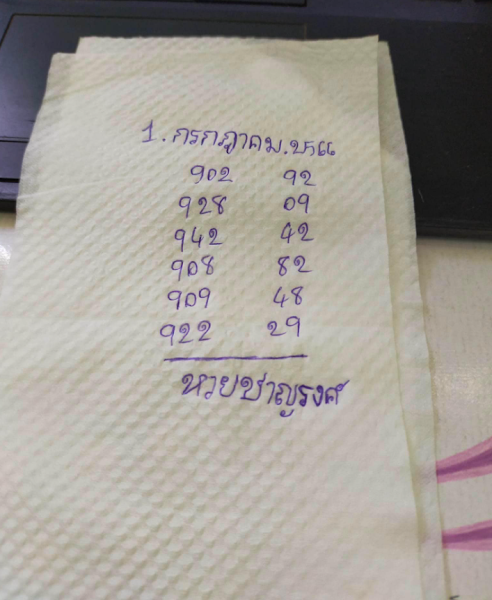 1. กรกฎาคม. ๖๕๕๔
902 92
928 09
942 42
908 82
909 48
922 29
หวยชาญรงค์